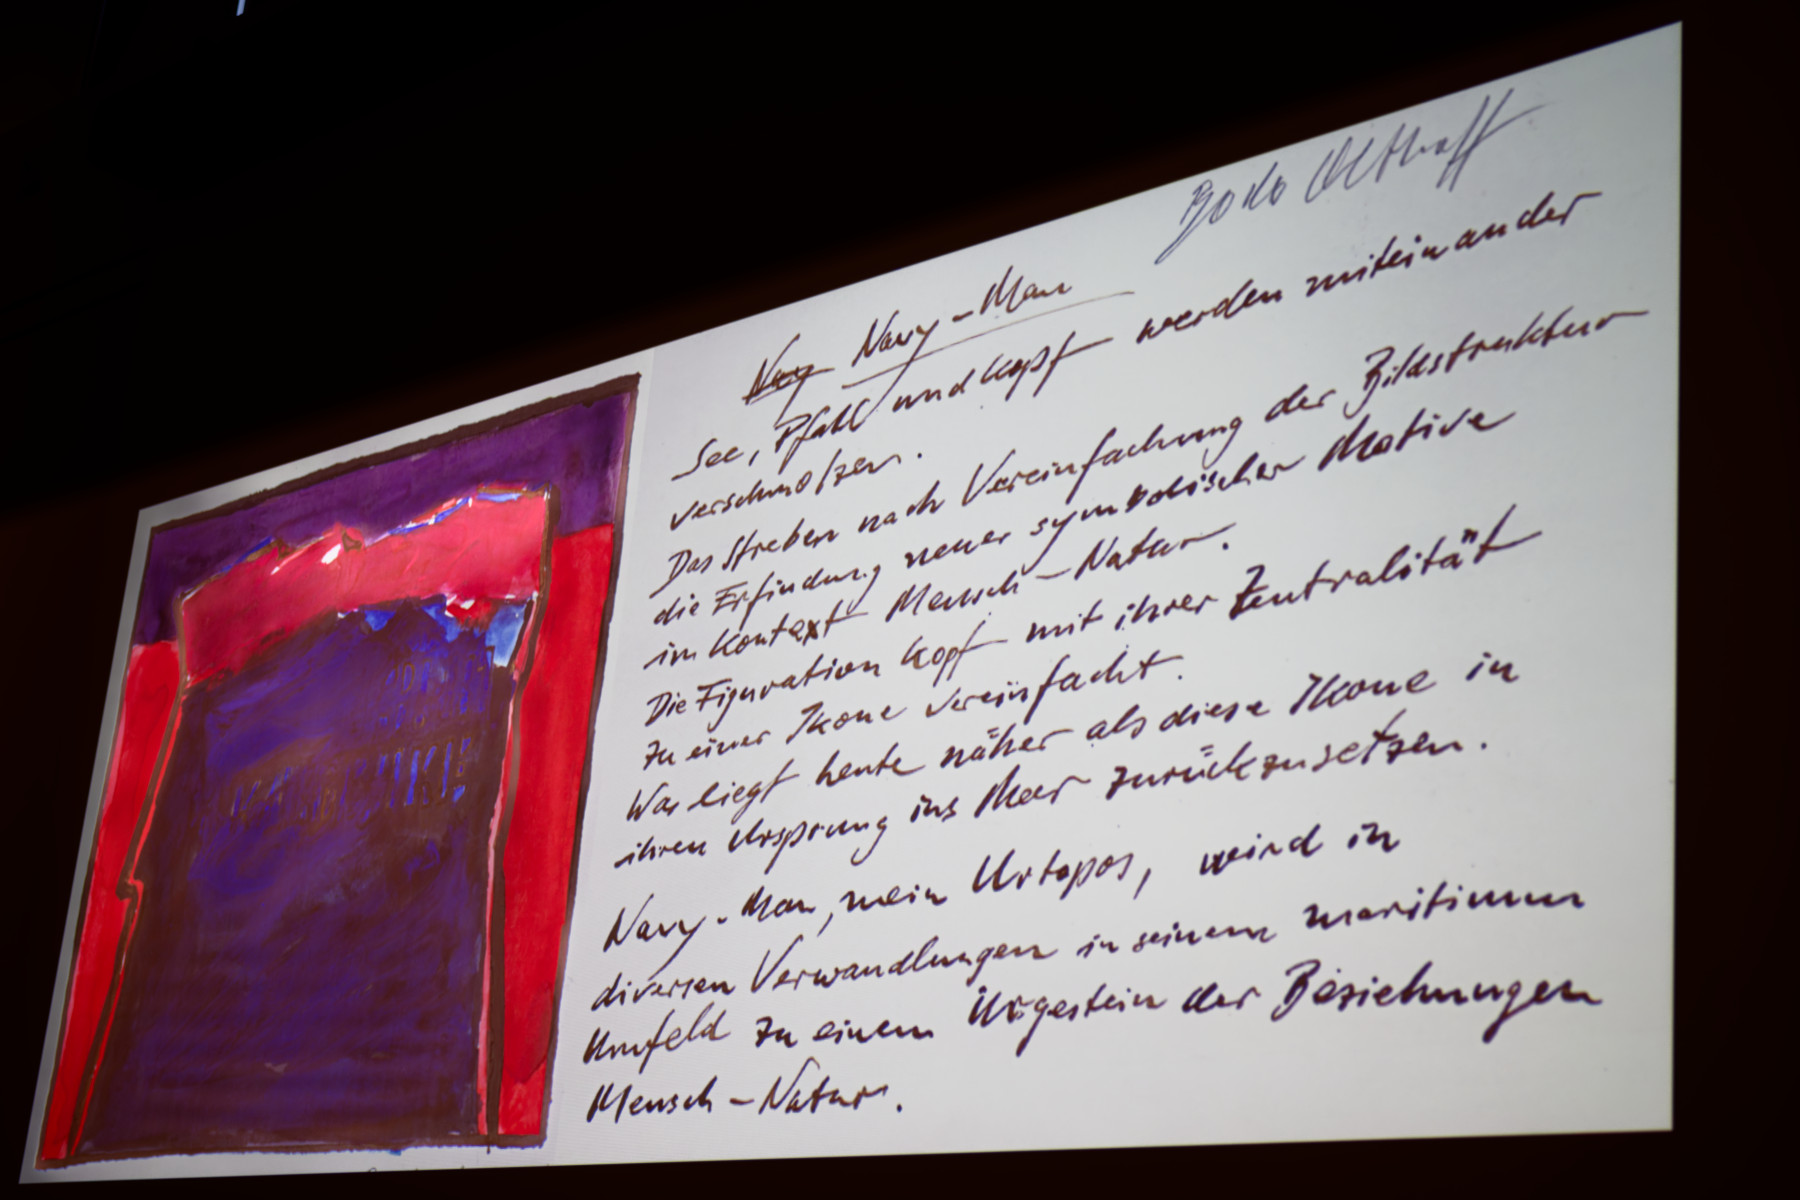 Bodo Olthoff
Navy Navy-Man
See, Pfahl und Kopf werden miteinander
verschmolzen.
Das Streben nach Vereinfachung der Bildstruktur
die Erfindung neuer symbolischer Motive
im Kontext Mensch-Natur.
Die Figuration Kopf mit ihrer Zentralität
zu einer Ikone vereinfacht.
Was liegt heute näher als diese Ikone in
ihren Ursprung ins Meer zurückzusetzen.
Navy-Man, mein Urtopos, wird in
diversen Verwandlungen in seinem maritimen
Umfeld zu einem Urgestein der Beziehungen
Mensch-Natur.